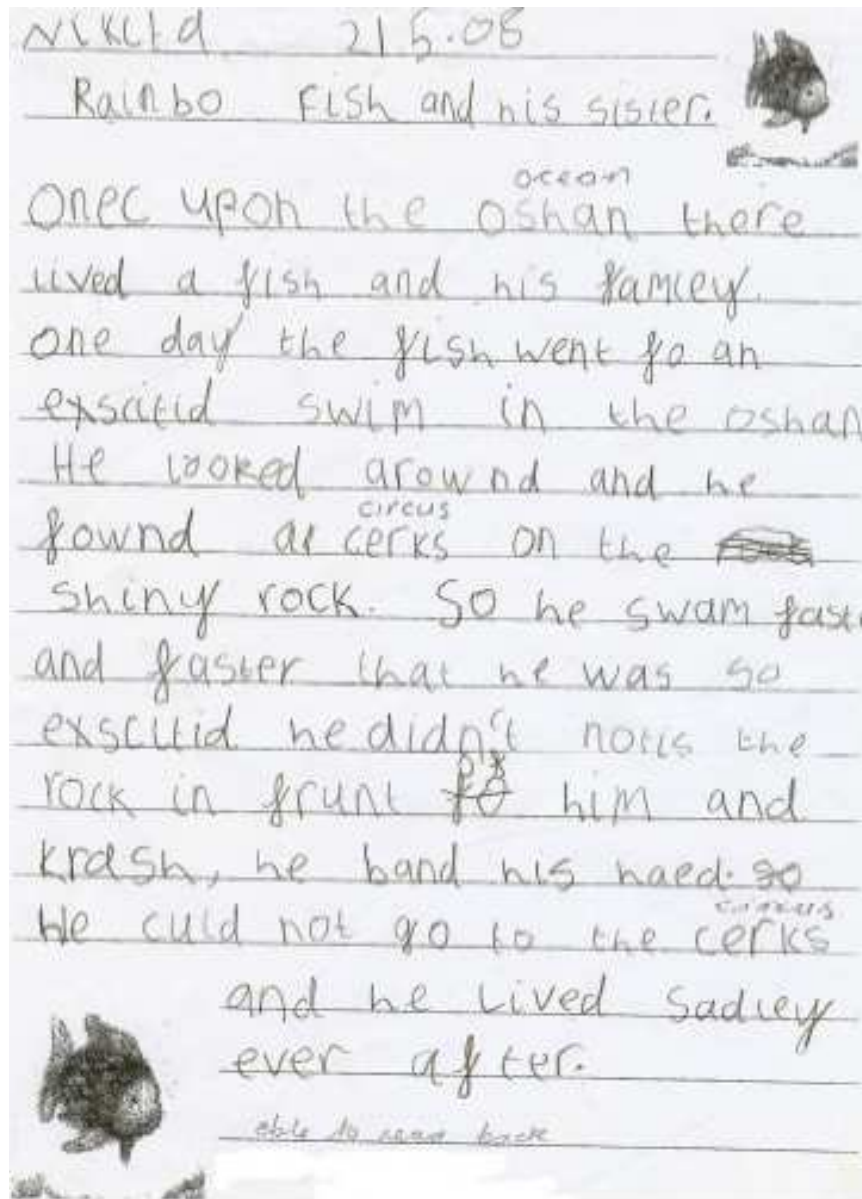 Nikita 21.5.08
Rainbo Fish and his sister.
ocean
onec upon the oshan there
lived a fish and his famley.
one day the fish went fo an
exscitid swim in the oshan
He looked arownd and he
circus
fownd a cerks on the
shiny rock. So he swam faste
and faster that he was so
exscitid he didn't notis the
rock in frunt of him and
krash, he band his haed. so
He culd not go to the cerks
and he lived sadley
ever after.
able to read back